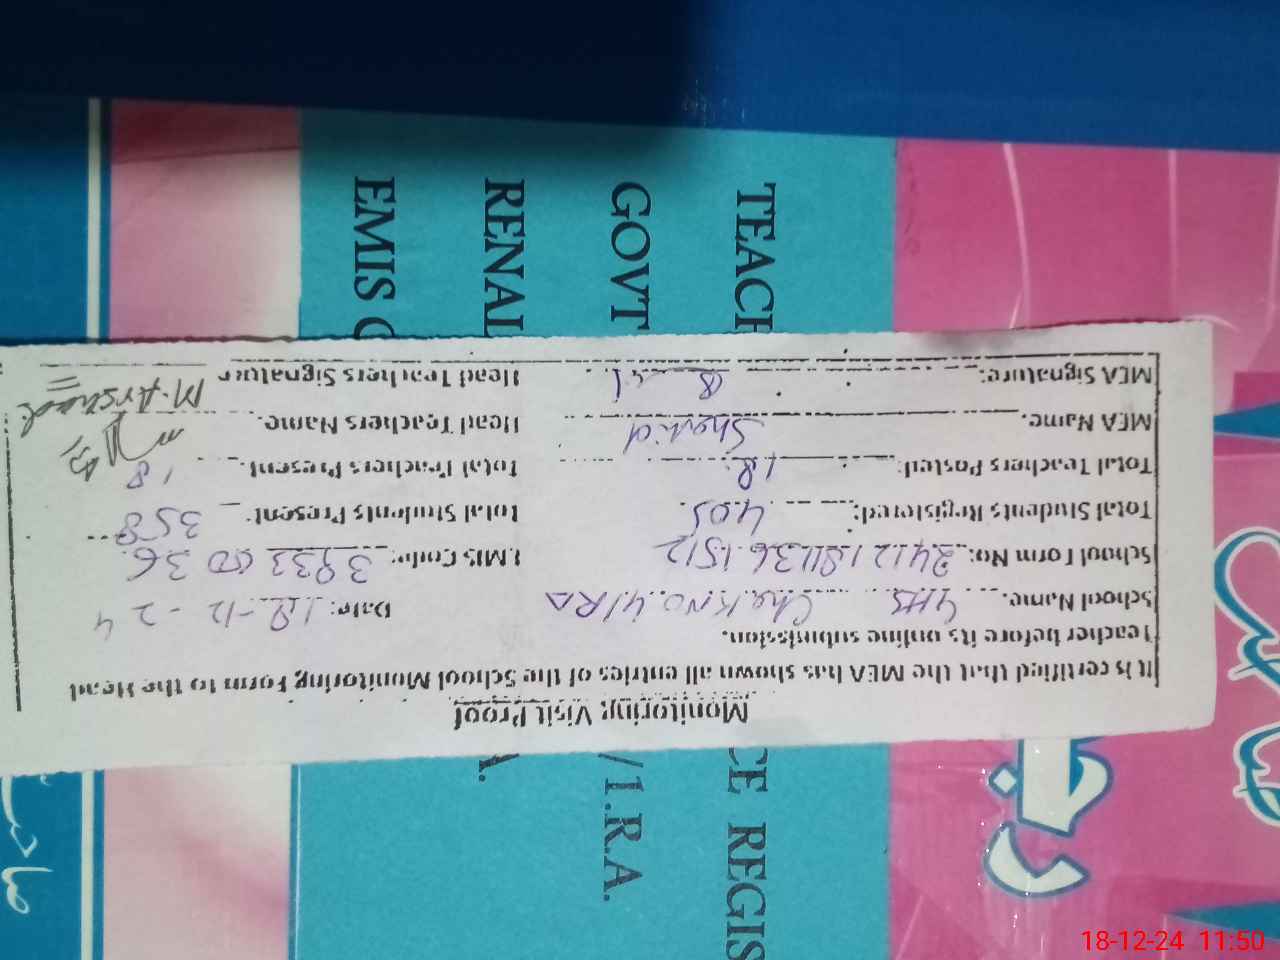 Monitoring Visit Proof
It is certified that the MEA has shown all entries of the School Monitoring Form to the Head
Teacher before its online submission.
School Name. GHS Chak No. 4/1RA Date: 18-12-24
School Form No: EMIS Code:
Total Students Registered: 405 Total Students Present: 358
Total Teachers Posted: 18 Total Teachers Present. 18
MEA Name. Shahid Head Teachers Name. M. Arshad
MEA Signature: Head Teachers Signatuer
TEACH CE REGIS
GOVT /1.R.A.
RENAL A.
EMIS C
18-12-24 11:50